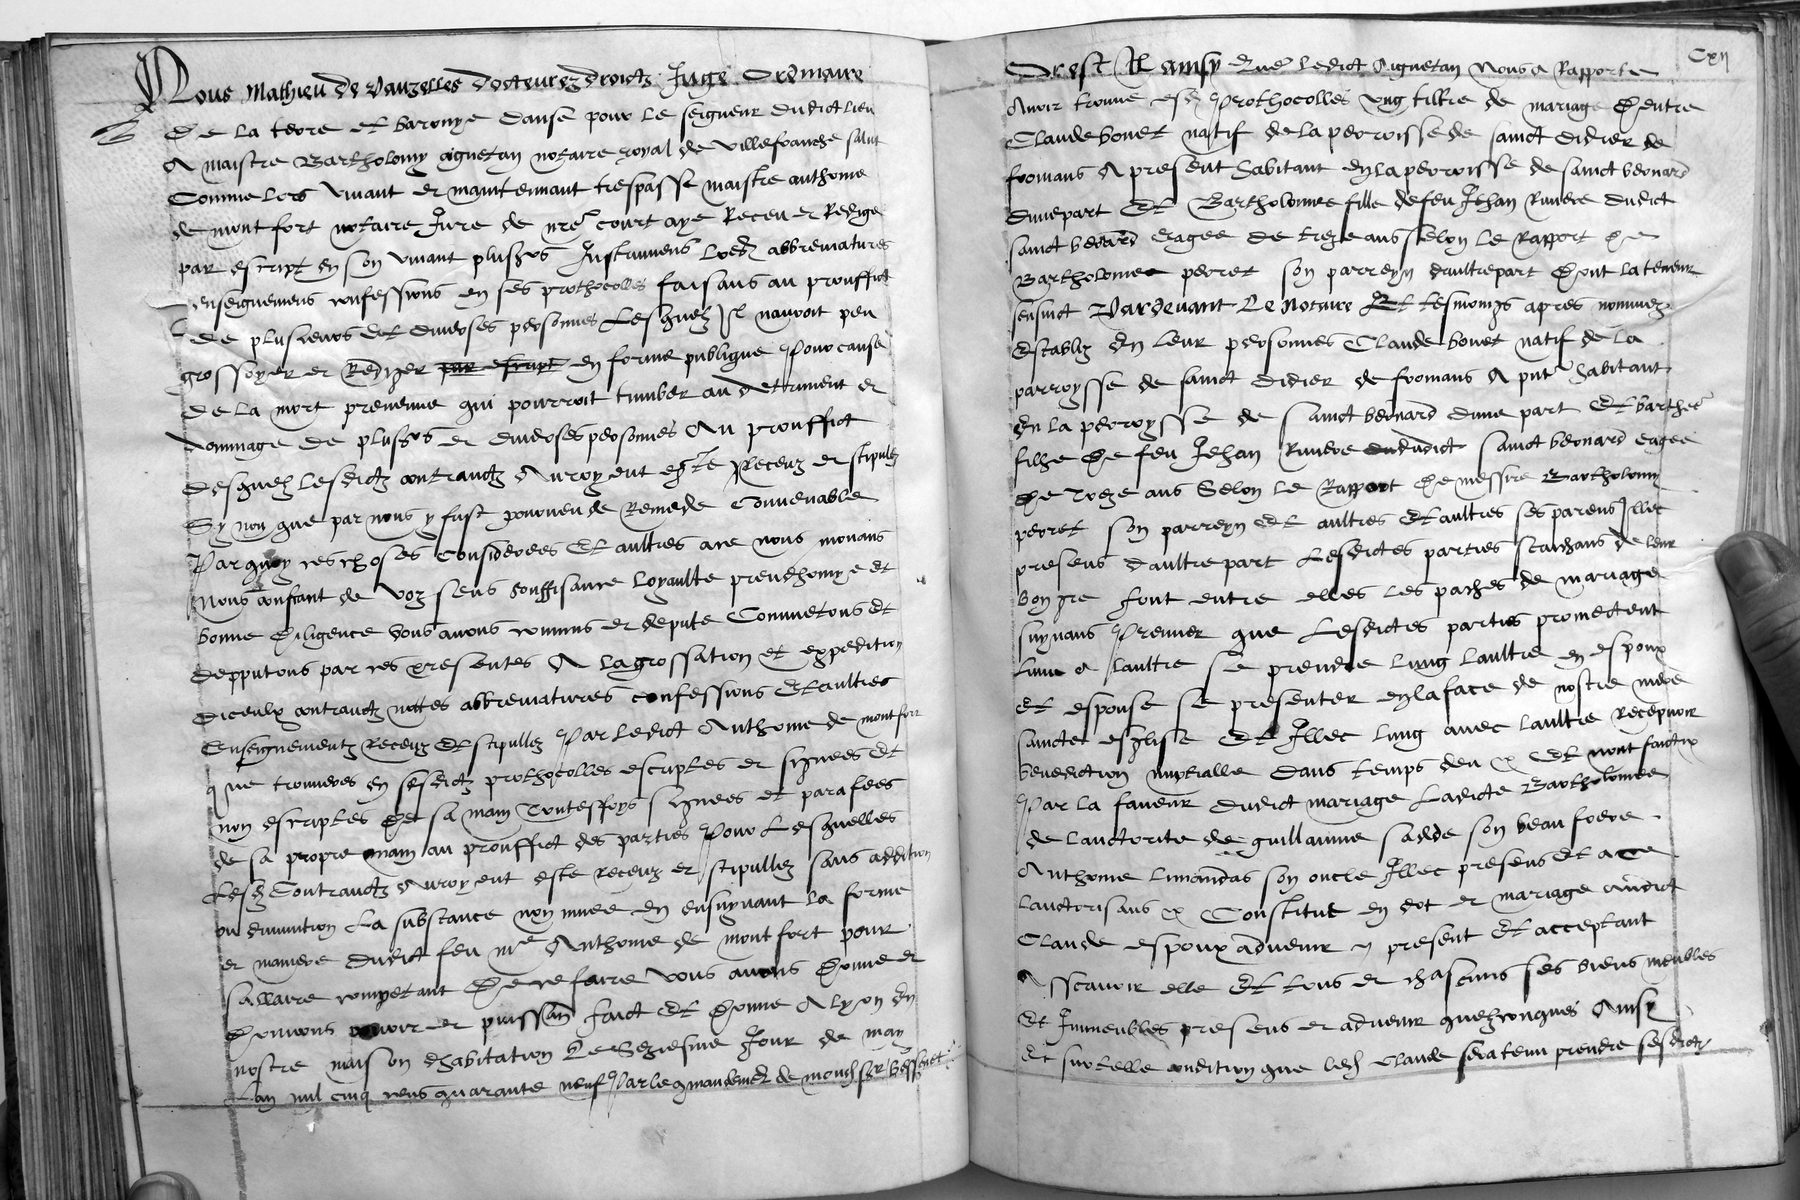 Nous Mathieu de Vauzelles docteur ez droictz Juge Ordinaire
De la terre et baronye Danse pour le seigneur dudict lieu
A maistre Bartholomy aiguetan notaire royal de villefranche salut
Comme lors vivant et maintennant trespasse maistre anthoine
de montfort notaire Jure de nre court aye Receu et Redige
par escript en son vivant plusrs Instrumens lodz abbreviatures
enseignemens confessions en ses prothocolles faisans au prouffict
de plusieurs et diverses personnes Lesquelz Il nauroit peu
grossoyer et Redizer par escript en forme publique Pour cause
de la mort prevenue qui pourroit tumber au detriment et
dommage de plusrs et diverses personnes Au prouffict
desquelz lesdictz contraictz Auroyent este Receuz et stipulez
Sy non que par nous y fust pourveu de Remede Convenable
Par quoy ces choses Considerees Et aultres a ce nous mouans
Nous confiant de voz sens souffisance loyaulte preudhomye et
bonne diligence vous avons commis et depute Commetons et
depputons par ces presentes A la grossation et expedition
diceulx contraictz nottes abbreviatures confessions Et aultres
Enseignementz Receuz Et stipullez Par ledict Anthoine de montfort
que trouveres en sesdictz prothocolles escriptes et signees et
non escriptes de sa main Toutesfoys signees et parafees
de sa propre main au prouffict des parties Pour Lesquelles
Lesdz Contraictz Auroyent este receuz et stipullez sans addition
ou diminution La substance non muee en ensuyvant la forme
et maniere dudict feu me Anthoine de montfort pour
sallaire competant De ce faire vous avons Donne et
Donnons povoir et puissan faict Et Donne A lyon En
nostre maison dhabitation Le Seziesme Jour de may
Lan mil cinq cens quarante neuf Par le commandemet de mondsr
Cxii
Or est Il ainsy Que ledict Aiguetan Nous a Rapporte
Avoir trouve esdz Prothocolles ung tiltre de mariage Dentre
Claude bonet natif de la perroisse de sainct didier de
fromans A present habitant en la perroisse de sainct bernard
dune part Et Bartholomee fille de feu Jehan Riviere dudict
sainct bernard eagee de treze ans selon le Rapport De
Bartholomee perret son parreyn daultre part Dont la teneur
sensuict Pardevant Le Notaire Et tesmoings apres nommez
Establiz En leur personnes Claude bonet natif de la
parroysse de sainct didier de fromans A pnt habitant
En la perroysse de sainct bernard dune part Et barthee
fille De feu Jehan Riviere dudict sainct bernard eagee
De treze ans Selon le Rapport De messire Bartholomy
perret son parreyn Et aultres Et aultres ses parens Illec
presens daultre part Lesdictes parties scaichans de leur
bon gre font entre elles les paches de mariage
suyvans Premier que Lesdictes parties promectent
lune a laultre se prendre lung laultre en espoux
Et espouse se presenter en la face de nostre mere
saincte esglise Et Illec lung avec laultre Recepvoir
benediction nuptialle dans temps deu Et
Par la faveur dudict mariage Ladicte Bartholomee
de lauctorite de guillaume sadde son beau frere
Anthoine Limandas son oncle Illec presens Et a ce
lauctorisans Constitue en dot et mariage audict
Claude espoux advenir present Et acceptant
Asscavoir elle Et tous et chascuns ses biens meubles
Et Immeubles presens et advenir quelzconques Ainsy
Et sur telle condition que ledz Claude sera tenu prendre sesdictz